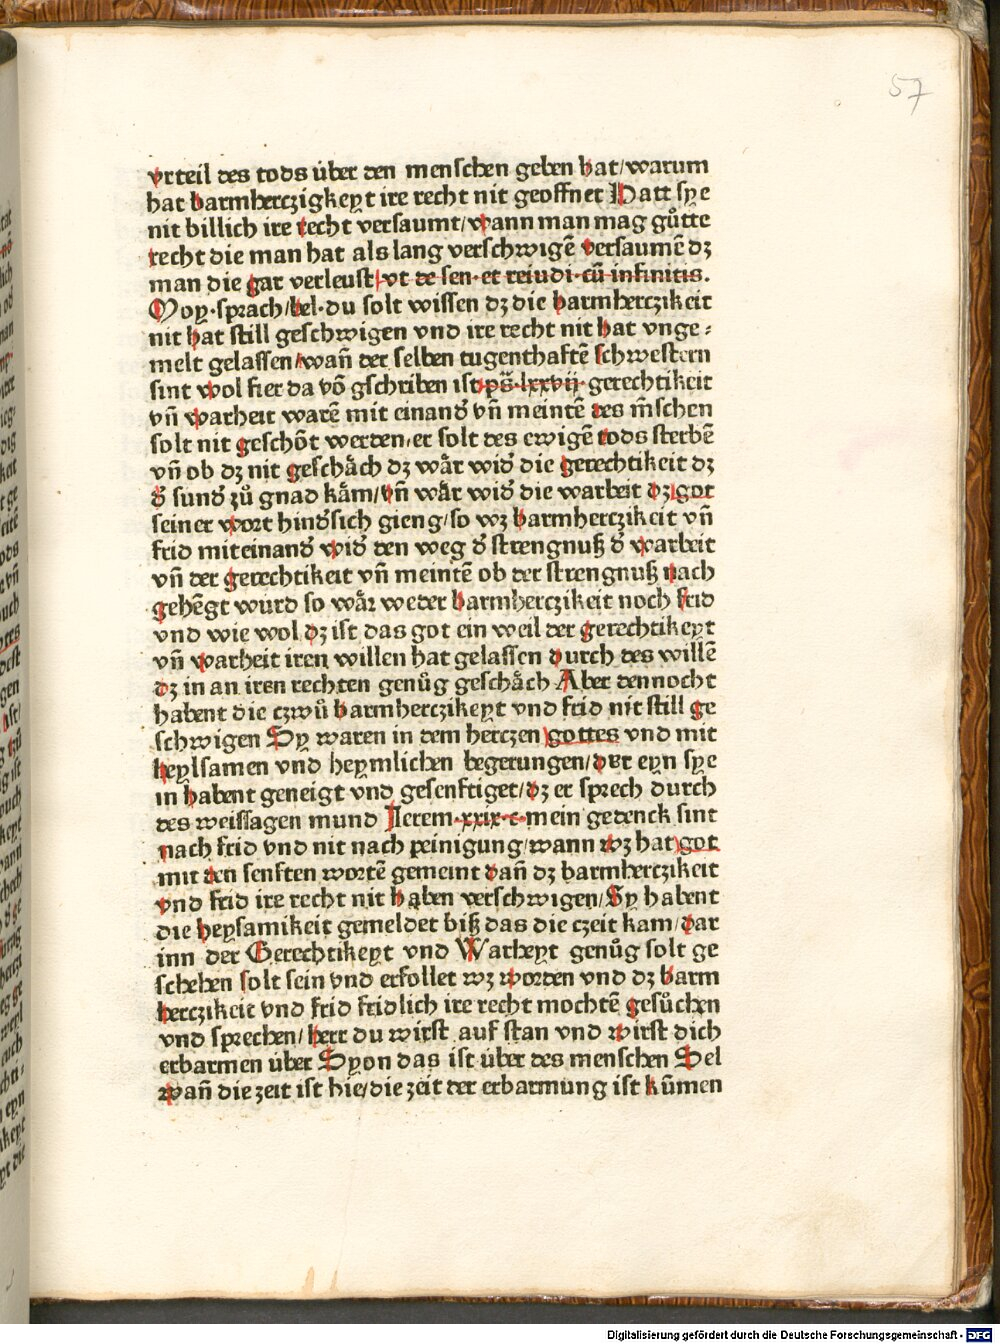 57
vrteil des tods über den menschen geben hat/warum
hat barmherczigkeyt ire recht nit geoffnet Hatt sye
nit billich ire recht versaumt/wann man mag gůtte
recht die man hat als lang verschwigē versaumē dz
man die gar verleust/vt de sen·et reiudi·cū infinitis.
Moy·sprach/bel·du solt wissen dz die barmherczikeit
nit hat still geschwigen vnd ire recht nit hat vnge⸗
melt gelassen/wañ der selben tugenthaftē schwestern
sint wol fier da vō gschriben ist/ps̄·lxxvij·gerechtikeit
vñ warheit warē mit einanď vñ meintē des m̄schen
solt nit geschōt werden/er solt des ewigē tods sterbē
vñ ob dz nit geschåch dz wår wiď die gerechtikeit dz
ď sunď zů gnad kåm/vñ wår wiď die warheit dz/got
seiner wort hinďsich gieng/so wz barmherczikeit vñ
frid miteinanď wiď den weg ď strengnuß ď warheit
vñ der gerechtikeit vñ meintē ob der strengnuß nach
gehēgt wurd so wår weder barmherczikeit noch frid
vnd wie wol dz ist das got ein weil der gerechtikeyt
vñ warheit iren willen hat gelassen durch des willē
dz in an iren rechten genůg geschåch Aber dennocht
habent die czwů barmherczikeyt vnd frid nit still ge
schwigen Sy waren in dem herczen gottes vnd mit
heylsamen vnd heymlichen begerungen/der eyn sye
in habent geneigt vnd gesenftiget/dz er sprech durch
des weissagen mund Jerem·xxix·c·mein gedenck sint
nach frid vnd nit nach peinigung/wann wz hat got
mit den senften wortē gemeint dañ dz barmherczikeit
vnd frid ire recht nit haben verschwigen/Sy habent
die heysamikeit gemeldet biß das die czeit kam/dar
inn der Gerechtikeyt vnd Warheyt genůg solt ge
schehen solt sein vnd erfollet wz worden vnd dz barm
herczikeit vnd frid fridlich ire recht mochtē gesůchen
vnd sprechen/herr du wirst auf stan vnd wirst dich
erbarmen über Syon das ist über des menschen Sel
wañ die zeit ist hie/die zeit der erbarmung ist kūmen
Digitalisierung gefördert durch die Deutsche Forschungsgemeinschaft - DFG